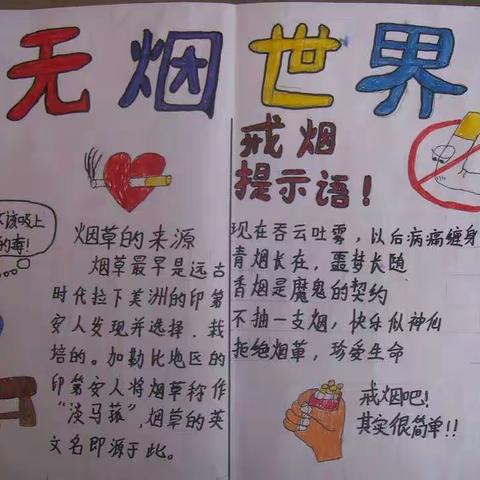 无烟世界
戒烟
提示语!
该吸上
的毒!
烟草的来源
烟草最早是远古
时代拉下美洲的印第
安人发现并选择.栽
培的。加勒比地区的
印第安人将烟草称作
“淡马菰”,烟草的英
文名即源于此。
现在吞云吐雾,以后病痛缠身
青烟长在,噩梦长随
香烟是魔鬼的契约
不抽一支烟,快乐似神仙
拒绝烟草,珍爱生命
戒烟吧!
其实很简单!!